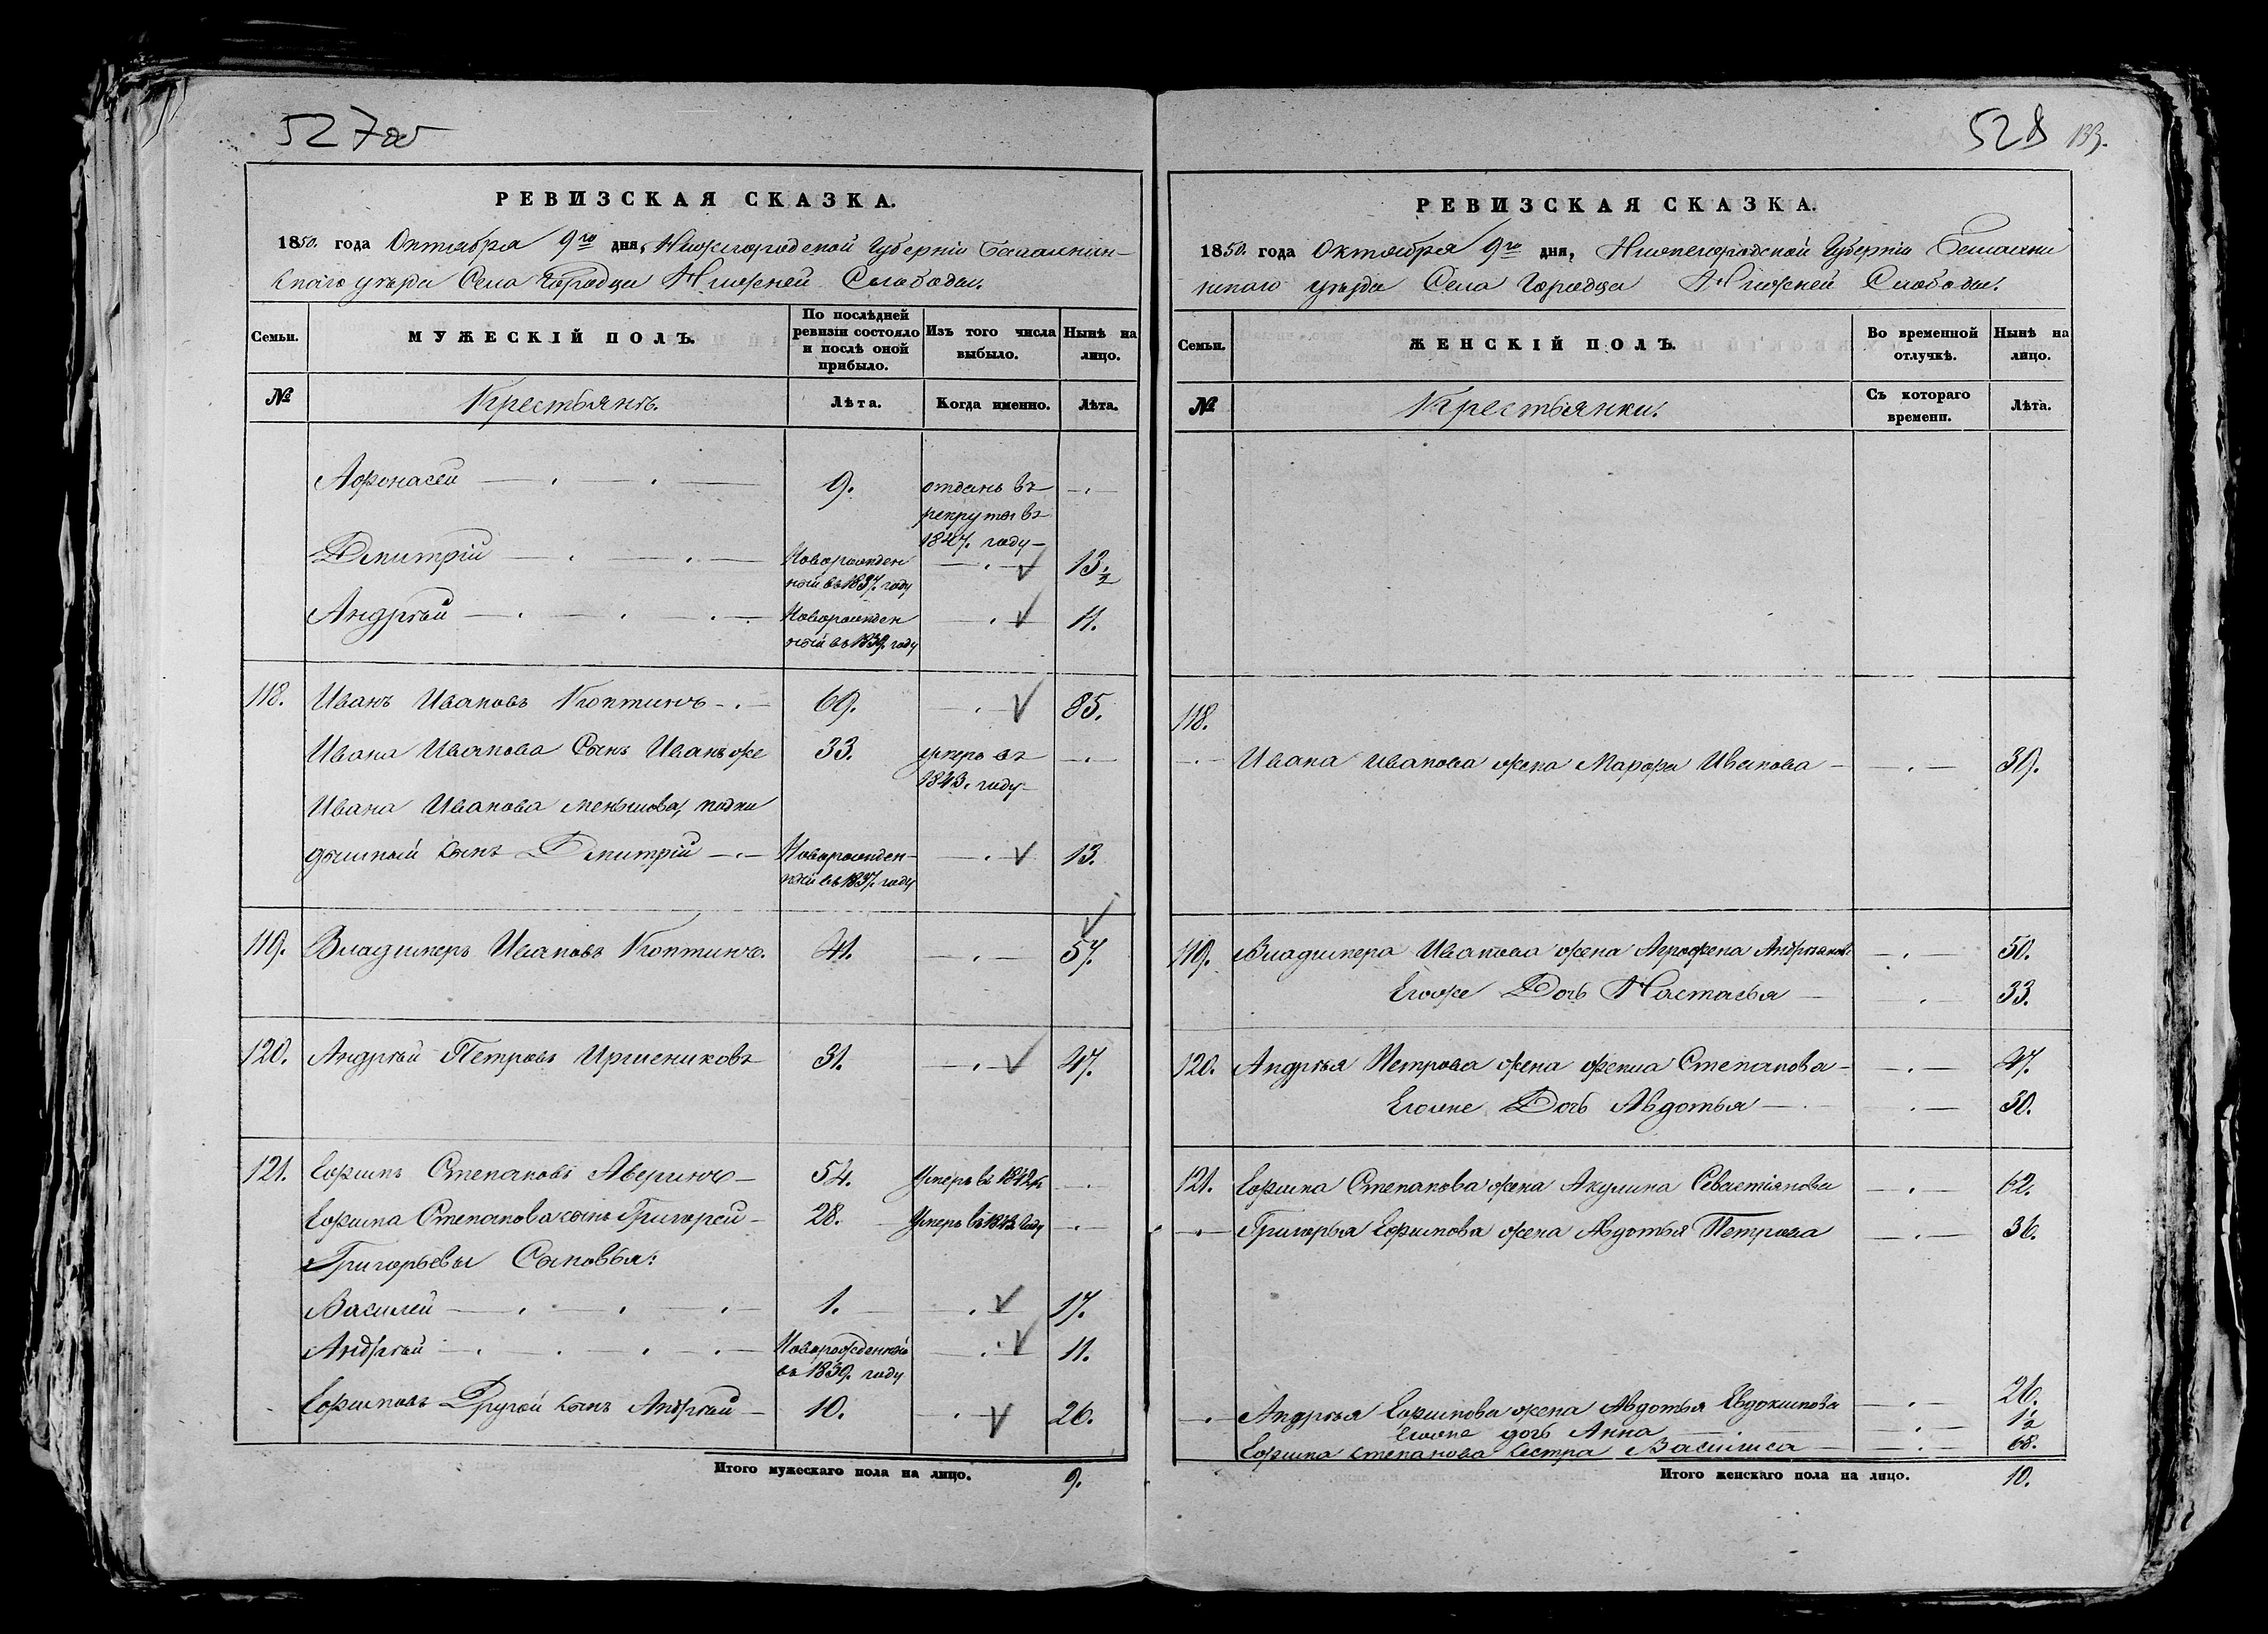 527об
РЕВИЗСКАЯ СКАЗКА.
1850. года Октября 9го дня, Нижегородской Губерніи Балахнин-
скаго уѣзда Села Городца Нижней Слободы.
Семьи.
МУЖЕСКІЙ ПОЛЪ.
По послѣдней
ревизіи состояло
и послѣ оной
прибыло.
Изъ того числа
выбыло.
Нынѣ на
лицо.
№
Крестьянъ.
Лѣта.
Когда именно.
Лѣта.
Афонасей — . — . — 9. отданъ въ — . —
рекруты въ
1847. году —
Дмитрій — . — . — Новорожден — . — 13 1/2
ной въ 1837. году
Андрѣй — . — . — . — Новорожден — . — 11.
ной въ 1839. году
118. Иванъ Ивановъ Коптинъ — . — 69. — . — 85.
Ивана Иванова Сынъ Иванъ же 33. умеръ въ — . —
1843. году —
Ивана Иванова меньшова, подки
дышный сынъ Дмитрій — . — Новорожден- — . — 13.
ной въ 1837. году
119. Владимеръ Ивановъ Коптинъ. 41. — . — 57.
120. Андрѣй Петровъ 31. — . — 47.
121. Ефимъ Степановъ Аверинъ — 54. Умеръ въ 1842 — . —
Ефима Степанова сынъ Григорей — 28. Умеръ въ 1843 году — . —
Григорьевы Сыновья:
Василей — . — . — . — 1. — . — 17.
Андрѣй — . — . — . — Новорожденной — . — 11.
въ 1839. году
Ефимовъ Другой сынъ Андрѣй — 10. — . — 26.
Итого мужескаго пола на лицо. 9.
528 133.
РЕВИЗСКАЯ СКАЗКА.
1850. года Октября 9го дня, Нижегородской Губерніи Балахни
нскаго уѣзда Села Городца Нижней Слободы.
Семьи.
ЖЕНСКІЙ ПОЛЪ.
Во временной
отлучкѣ.
Нынѣ на
лицо.
№
Крестьянки.
Съ котораго
времени.
Лѣта.
118.
— . — Ивана Иванова жена Марфа Иванова — . — 39.
119. Владимера Иванова жена Агрофена Андреянов: — . — 50.
Егоже Дочь Настасья — . — 33.
120. Андрѣя Петрова жена Фекла Степанова — . — 47.
Егоже Дочь Авдотья — . — 30.
121. Ефима Степанова жена Акулина Севастіянова — . — 62.
— . — Григорья Ефимова жена Авдотья Петрова — . — 36.
— . — Андрѣя Ефимова жена Авдотья Евдокимова — . — 26.
Егоже дочь Анна — . — 1 1/2
Ефима Степанова Сестра Василиса — . — 68.
Итого женскаго пола на лицо. 10.